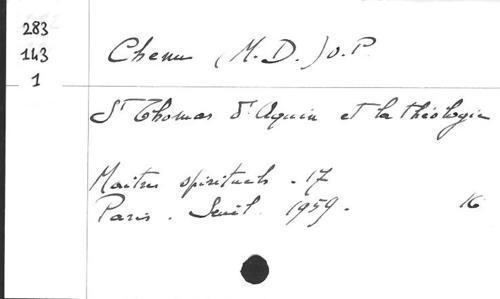 283
143
1
Chenu (M.D.) o.P.
St Thomas d'Aquin et la théologie
Maitres spirituels - 17
Paris. Seuil. 1959.
16